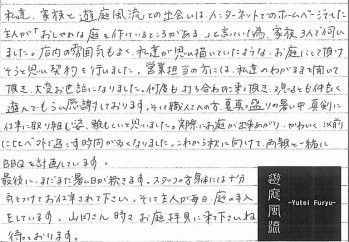 私達、家族と遊庭風流との出会いは、インターネットでのホームページでした
主人が「おしゃれな庭を作っているところがある」と言っていた為、家族3人で伺い
ました。店内の雰囲気もよく、私達が思い描いていたような、お庭にして頂け
そうと思い契約を行いました。営業担当の方には、私達のわがままを聞いて
頂き、大変お世話になりました。何度も打ち合わせに来て頂き、
遊んでもらい感謝しております。そして職人さんの方、真夏の盛りの暑い中、真剣に
仕事に取り組む姿、頼もしいと思いました。実際にお庭が出来あがり、かわいく、以前
に比べ外で過ごす時間が多くなりました。これから秋に向けて、両親と一緒に
BBQを計画しています。
最後に、まだまだ暑い日が続きます。スタッフの方、身体には十分
気をつけてお仕事されて下さい。そして主人が毎日、庭の手入
をしています。山田さん時々お庭拝見に来て下さいね
待っております。
遊庭風流
-Yutei Furyu-